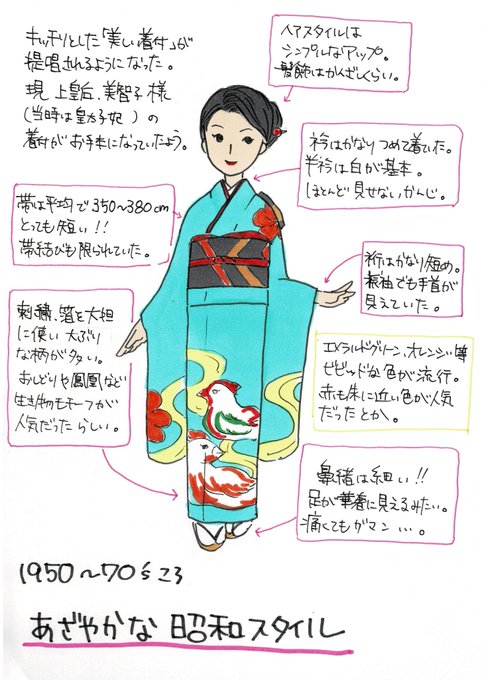 キッチリとした「美しい着付」が
提唱されるようになった。
現 上皇后、美智子様
(当時は皇太子妃)の
着付がお手本になっていたよう。
ヘアスタイルは
シンプルなアップ。
髪飾はかんざしくらい。
衿はかなりつめて着ていた。
半衿は白が基本。
ほとんど見せないかんじ。
帯は平均で350〜380cm
とっても短い!!
帯結びも限られていた。
裄はかなり短め。
振袖でも手首が
見えていた。
刺繍、箔を大胆
に使い 大ぶり
な柄が多い。
おしどりや鳳凰など
生き物モチーフが
人気だったらしい。
エメラルドグリーン、オレンジ等
ビビッドな色が流行。
赤も朱に近い色が人気
だったとか。
鼻緒は細い!!
足が華奢に見えるみたい。
痛くてもガマン…。
1950〜70'sころ
あざやかな 昭和スタイル